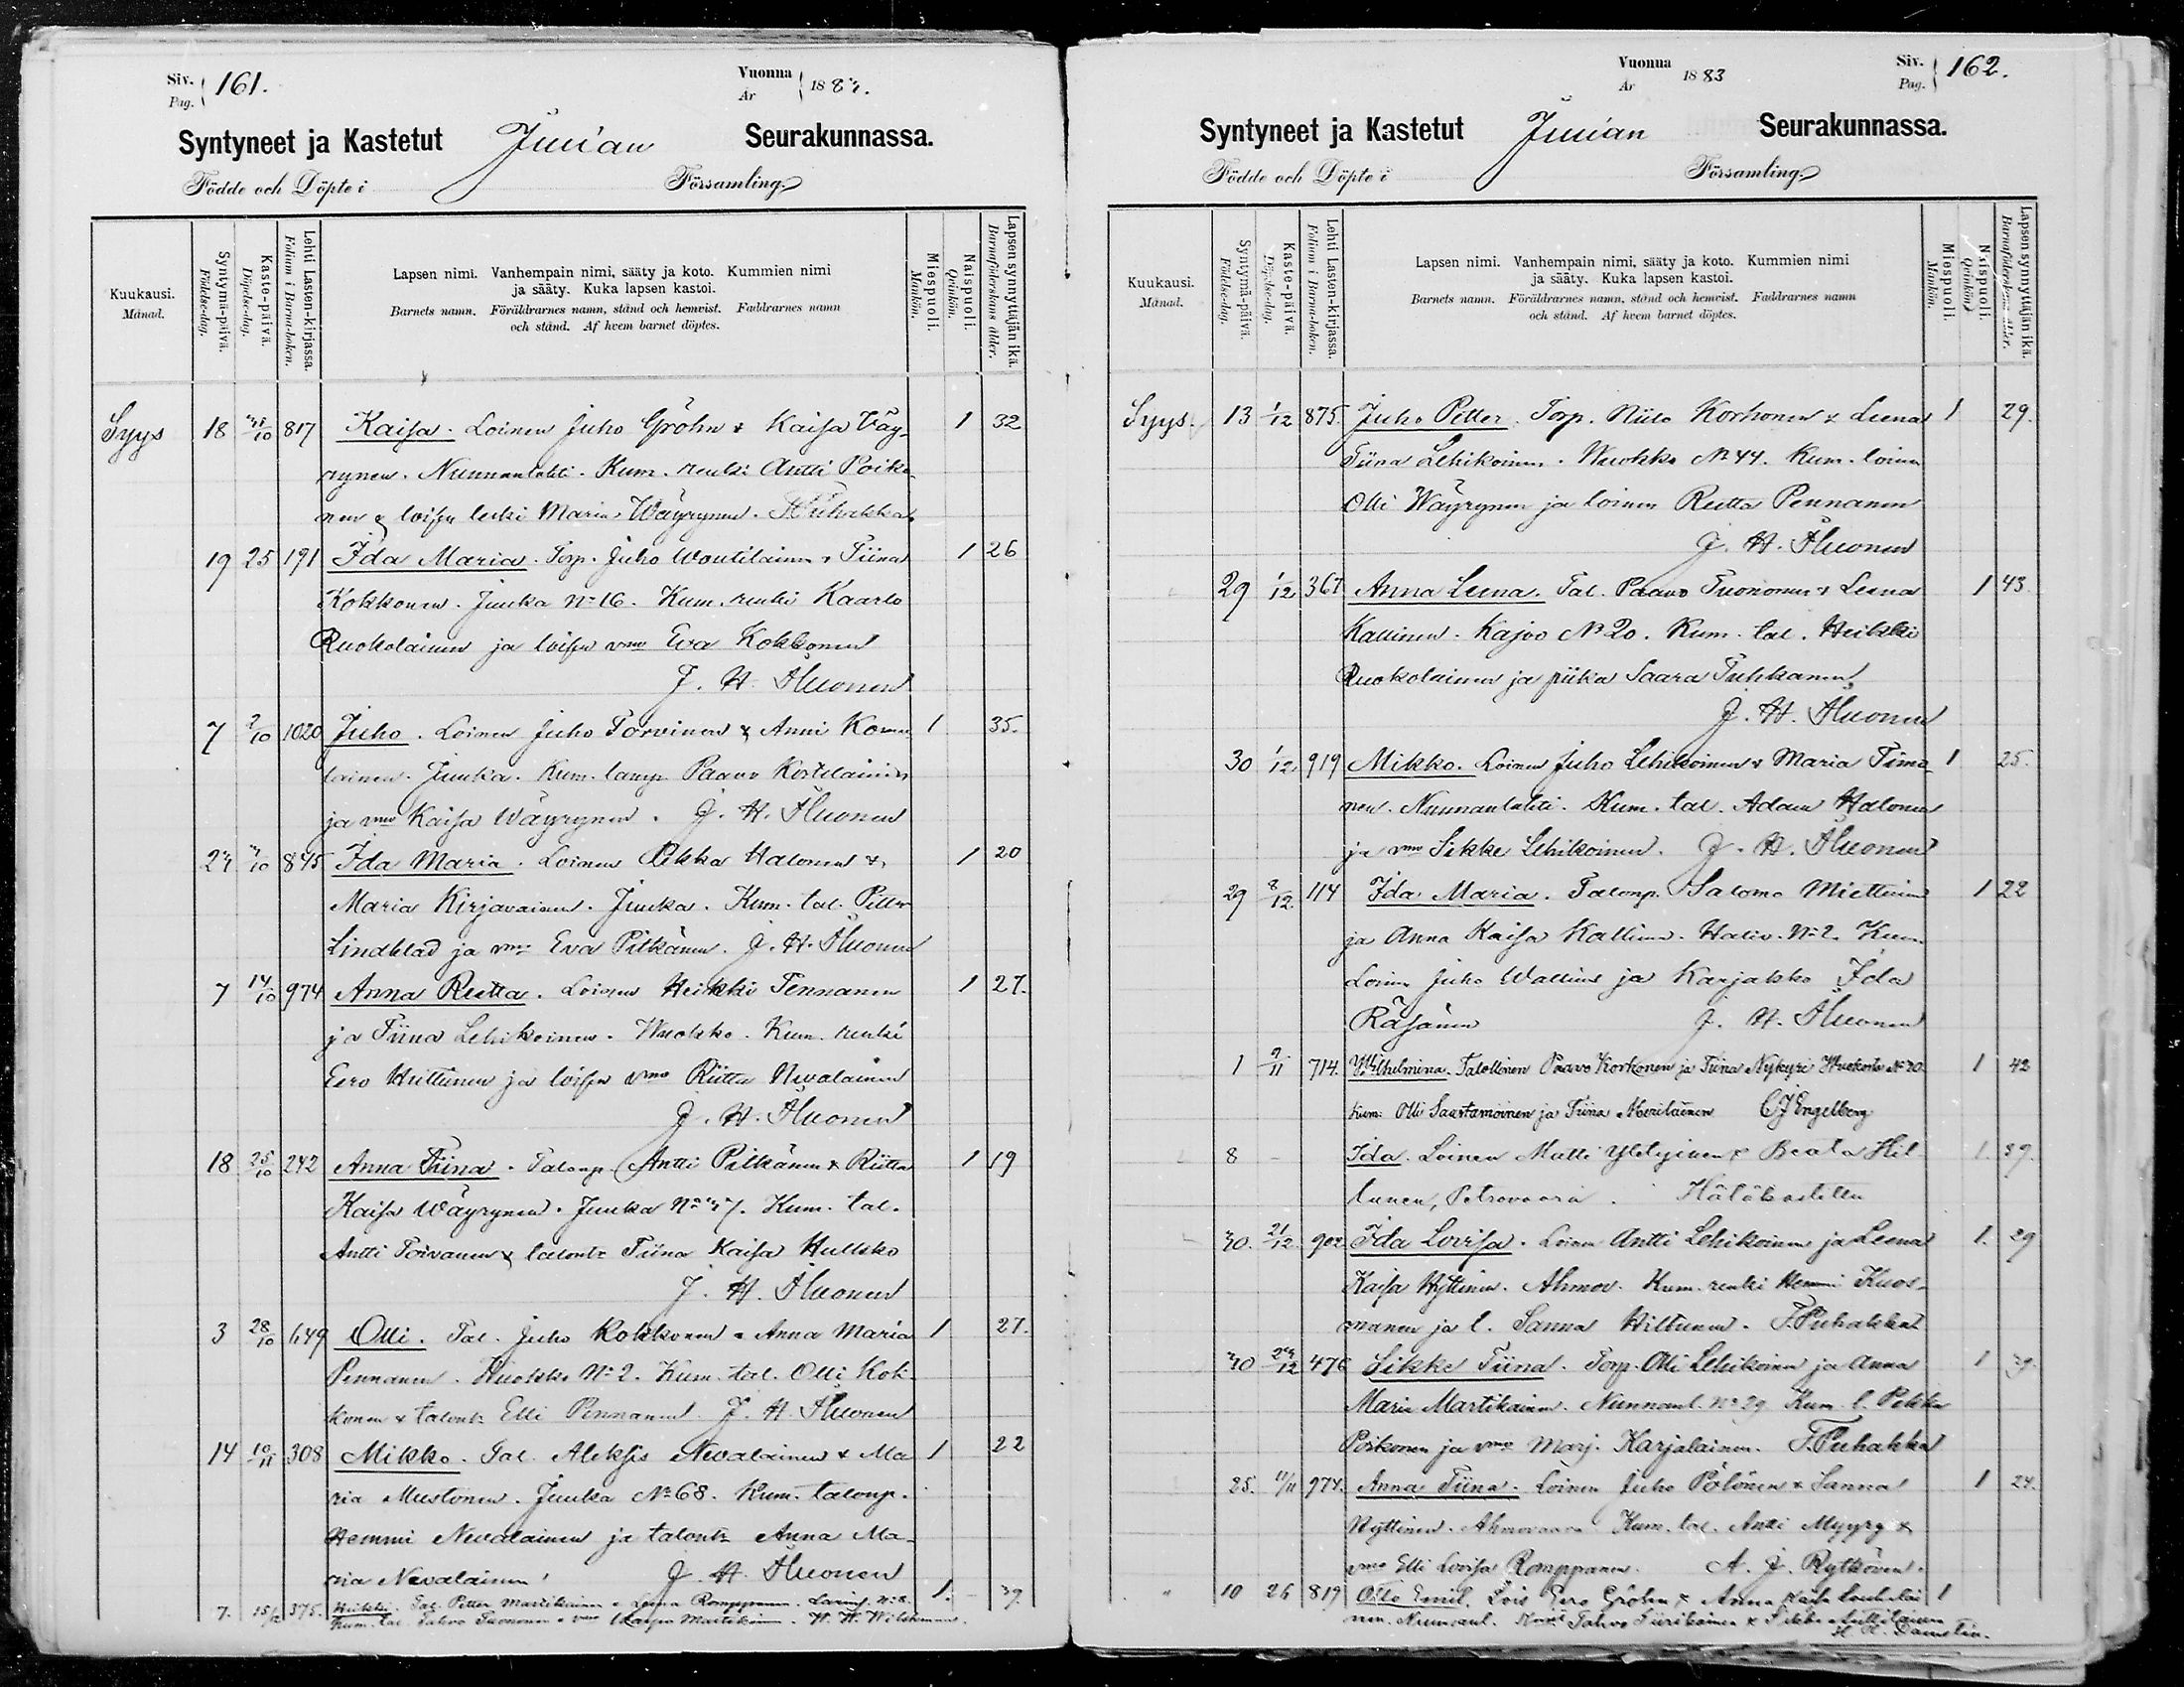 Siv. Pag. 161.
Vuonna År 1883.
Syntyneet ja Kastetut Juuan Seurakunnassa.
Födde och Döpte i Församling.
Kuukausi. Månad.
Syntymä-päivä. Födelse-dag.
Kaste-päivä. Döpelse-dag.
Lehti Lasten-kirjassa. Folium i Barna-boken.
Lapsen nimi. Vanhempain nimi, sääty ja koto. Kummien nimi
ja sääty. Kuka lapsen kastoi.
Barnets namn. Föräldrarnes namn, stånd och hemvist. Faddrarnes namn
och stånd. Af hvem barnet döptes.
Miespuoli. Mankön.
Naispuoli. Qvinkön.
Lapsensynnyttäjän ikä. Barnaföderskans ålder.
Syys 18 817 Kaisa. Loinen Juho Gröhn & Kaisa Väy- 1 32
rynen. Nunnanlahti. Kum. renki Antti Poiko-
nen & loisen leski Maria Wäyrynen. Puhakka
19 25 191 Ida Maria. Torp. Juho Woutilainen & Tiina 1 26
Kokkonen. Juuka No 16. Kum. renki Kaarlo
Ruokolainen ja loisen vmo Eva Kokkonen
J. H. Huonen
7 2/10 1020 Juho. Loinen Juho Torvinen & Anni Komu- 1 35.
lainen. Juuka. Kum. lamp. Paavo Kostilainen
ja vmo Kaisa Wäyrynen. J. H. Huonen
23 845 Ida Maria. Loinen Pekka Halonen & 1 20
Maria Kirjavainen. Juuka. Kum. tal. Petter
Lindblad ja vmo Eva Pitkänen. J. H. Huonen
7 14/10 974 Anna Reetta. Loinen Heikki Pennanen 1 27.
ja Tiina Lehikoinen. Wuokko. Kum. renki
Eero Hiltunen ja loisen vmo Riitta Nevalainen
J. H. Huonen
18 25/10 242 Anna Tiina. Talonp. Antti Pitkänen & Riitta 1 19
Kaisa Wäyrynen. Juuka No 37. Kum. tal.
Antti Toivanen & talontr Tiina Kaisa Hullkko
J. H. Huonen
3 28/10 649 Olli. Tal. Juho Kokkonen & Anna Maria 1 27.
Pennanen. Wuokko No 2. Kum. tal. Olli Kok-
konen & talontr Elli Pennanen. J. H. Huonen
14 10/11 308 Mikko. Tal. Aleksis Nevalainen & Ma- 1 22
ria Mustonen. Juuka No 68. Kum. talonp.
Hemmi Nevalainen ja talontr Anna Ma-
ria Nevalainen J. H. Huonen
7. 375. Heikki. Tal. Petter Martikainen & Leena Romppanen. 1. 39.
Kum. tal. Tahvo Tuononen & vmo Martikainen. W. W. Wilskman.
Siv. Pag. 162.
Vuonna År 1883
Syntyneet ja Kastetut Juuan Seurakunnassa.
Födde och Döpte i Församling.
Kuukausi. Månad.
Syntymä-päivä. Födelse-dag.
Kaste-päivä. Döpelse-dag.
Lehti Lasten-kirjassa. Folium i Barna-boken.
Lapsen nimi. Vanhempain nimi, sääty ja koto. Kummien nimi
ja sääty. Kuka lapsen kastoi.
Barnets namn. Föräldrarnes namn, stånd och hemvist. Faddrarnes namn
och stånd. Af hvem barnet döptes.
Miespuoli. Mankön.
Naispuoli. Qvinkön.
Lapsensynnyttäjän ikä.
Syys. 13 1/12 875. Juho Petter. Torp. Niilo Korhonen & Leena 1 29.
Tiina Lehikoinen. Wuokko No 44. Kum. loinen
Olli Wäyrynen ja loinen Reetta Pennanen
J. H. Huonen
29 1/12 367 Anna Leena. Tal. Paavo Tuononen & Leena 1 43.
Kallinen. Kajoo No 20. Kum. tal. Heikki
Ruokolainen ja piika Saara Tuhkanen
J. H. Huonen
30 1/12 919 Mikko. Loinen Juho Lehikoinen & Maria Timo- 1 25.
nen. Nunnanlahti. Kum. tal. Adam Halonen
ja vmo Sikke Lehikoinen. J. H. Huonen
29 8/12 114 Ida Maria. Talonp. Salomo Miettinen 1 22
ja Anna Kaisa Kallinen. No 2. Kum.
Loinen Juho Wallius ja Karjakko Ida
Räsänen J. H. Huonen
1 9/11 714. Wilhelmina. Talollinen Paavo Korkonen ja Tiina Nykyri Wuokko No 30. 1 42
Kum: Olli Saastamoinen ja Tiina Meriläinen C J Engelberg
8 – Ida. Loinen Matti Yletyinen & Beata Hil- 1. 39.
tunen, Petrovaara. Hätäkastettu
30. 21/12 902 Ida Lovisa. Loinen Antti Lehikoinen ja Leena 1. 29
Kaisa Hyttinen. Ahmov. Kum. renki Hemmi Kuos-
manen ja l. Sanna Hiltunen. F. Puhakka
30 23/12 476 Sikke Tiina. Torp. Olli Lehikoinen ja Anna 1 39.
Maria Martikainen. Nunnanl. No 29 Kum. l. Pekka
Poikonen ja vmo Marj. Karjalainen. F. Puhakka
25. 11/11 974. Anna Tiina. Loinen Juho Pölönen & Sanna 1 24.
Hyttinen. Ahmovaara Kum. tal. Antti Myyry &
vmo Elli Lovisa Romppanen. A. J. Rytkönen.
10 26 819 Otto Emil. Lois Eero Gröhn & Anna Kaisa 1
nen. Nunnanl. Tahvo Tiirikainen & Sikke